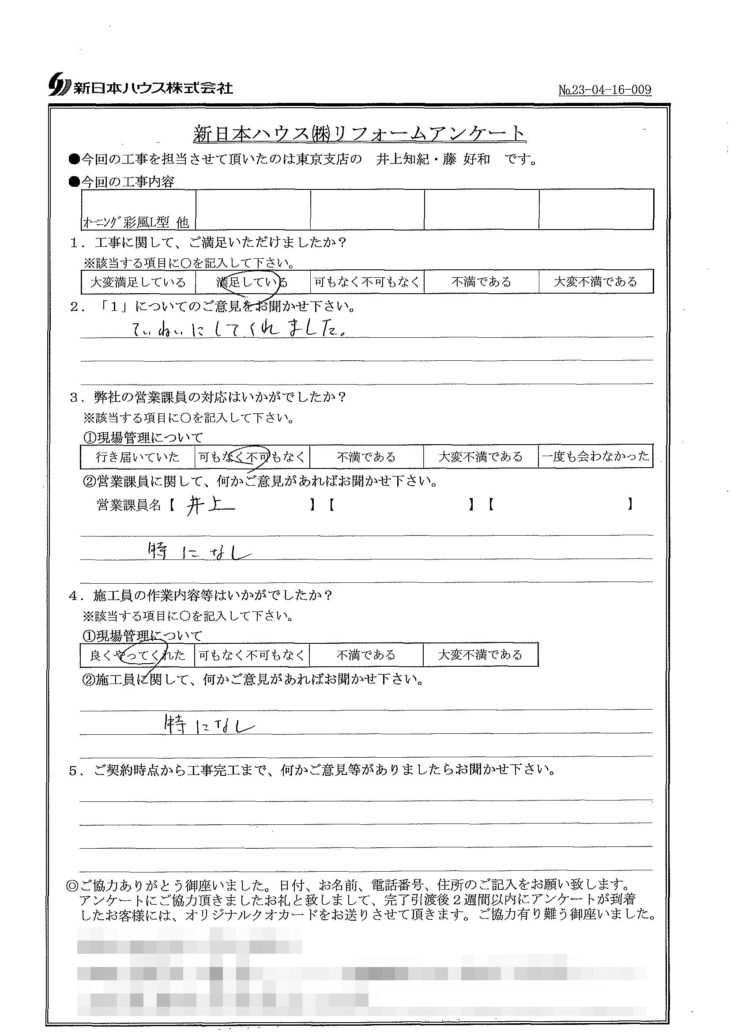 新日本ハウス株式会社
№23-04-16-009
新日本ハウス㈱リフォームアンケート
●今回の工事を担当させて頂いたのは東京支店の 井上知紀・藤 好和 です。
●今回の工事内容
オーニング彩風L型 他
1．工事に関して、ご満足いただけましたか？
※該当する項目に○を記入して下さい。
大変満足している 満足している 可もなく不可もなく 不満である 大変不満である
2．「1」についてのご意見をお聞かせ下さい。
ていねいにしてくれました。
3．弊社の営業課員の対応はいかがでしたか？
※該当する項目に○を記入して下さい。
①現場管理について
行き届いていた 可もなく不可もなく 不満である 大変不満である 一度も会わなかった
②営業課員に関して、何かご意見があればお聞かせ下さい。
営業課員名【 井上 】【 】【 】
特になし
4．施工員の作業内容等はいかがでしたか？
※該当する項目に○を記入して下さい。
①現場管理について
良くやってくれた 可もなく不可もなく 不満である 大変不満である
②施工員に関して、何かご意見があればお聞かせ下さい。
特になし
5．ご契約時点から工事完工まで、何かご意見等がありましたらお聞かせ下さい。
◎ご協力ありがとう御座いました。日付、お名前、電話番号、住所のご記入をお願い致します。
アンケートにご協力頂きましたお礼と致しまして、完了引渡後２週間以内にアンケートが到着
したお客様には、オリジナルクオカードをお送りさせて頂きます。ご協力有り難う御座いました。